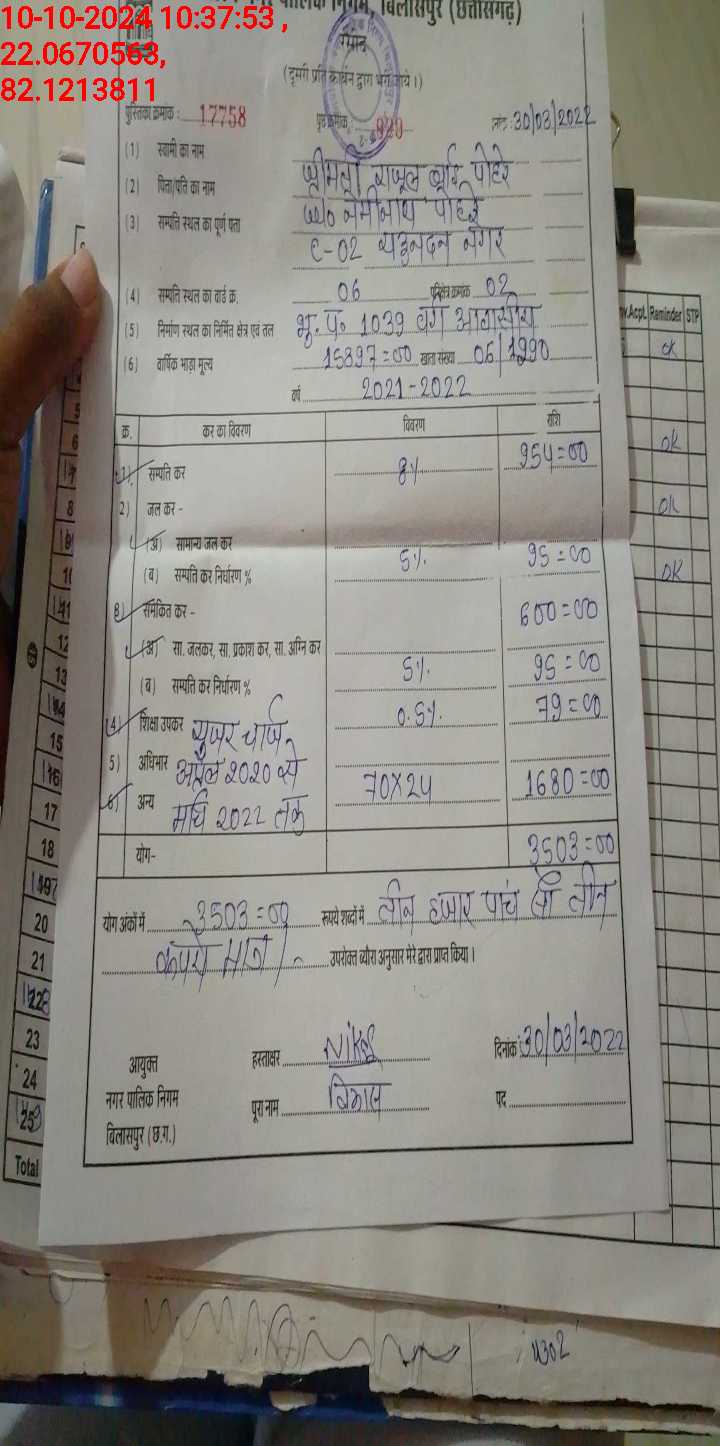 10-10-2024 10:37:53 ,
22.0670563,
82.1213811
नगर पालिक निगम, बिलासपुर (छत्तीसगढ़)
(दूसरी प्रति द्वारा भरी जाये।)
पुस्तिका क्रमांक : 17758 पृष्ठ क्रमांक दिनांक : 30/03/2022
(1) स्वामी का नाम श्रीमती राजूल बाई पोहरे
(2) पिता/पति का नाम W/o नेमीनाथ पोहरे
(3) सम्पति स्थल का पूर्ण पता
C-02 यदुनंदन नगर
(4) सम्पति स्थल का वार्ड क्र. 06 परिक्षेत्र क्रमांक 02
(5) निर्माण स्थल का निर्मित क्षेत्र एवं तल भू. प. 1039 वर्ग आवासीय
(6) वार्षिक भाड़ा मूल्य 15897=00 खाता संख्या 06/1990
वर्ष 2021-2022
क्र. कर का विवरण विवरण राशि
1) सम्पति कर 8% 954=00
2) जल कर -
(अ) सामान्य जल कर
(ब) सम्पति कर निर्धारण % 5% 95=00
3) समेकित कर - 600=00
(अ) सा. जलकर, सा. प्रकाश कर, सा. अग्नि कर
(ब) सम्पति कर निर्धारण % 5% 95=00
4) शिक्षा उपकर 0.5% 79=00
यूजर चार्ज
5) अधिभार अप्रैल 2020 से
6) अन्य मार्च 2022 तक 70X24 1680=00
योग- 3503=00
योग अंकों में 3503=00 रूपये शब्दों में तीन हजार पांच सौ तीन
रूपये मात्र उपरोक्त ब्यौरा अनुसार मेरे द्वारा प्राप्त किया।
आयुक्त हस्ताक्षर दिनांक : 30/03/2022
नगर पालिक निगम पूरा नाम विकास पद
बिलासपुर (छ.ग.)
Accpt. Reminder STP
OK
OK
OK
OK
5
6
8
12
13
15
17
18
20
21
23
24
Total